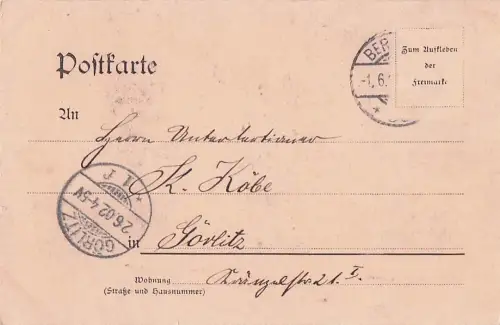 Postkarte
BER
-1.6.
Zum Aufkleben
der
Freimarke
An
Herrn Untertertianer
K. Köbe
in Görlitz
Wohnung
(Straße und Hausnummer)
Kränzelstr 21. I.
GÖRLITZ
2.6.02.4-5V
* 1 f